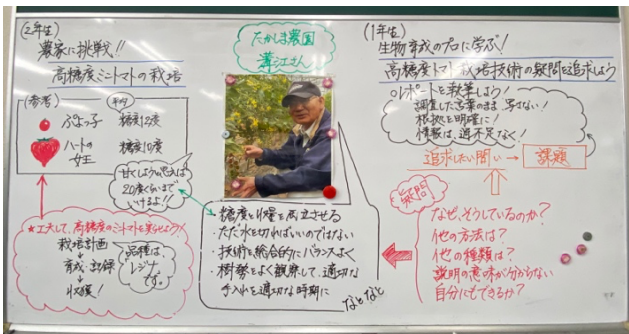 (2年生)
農家に挑戦!!
高糖度ミニトマトの栽培
(参考)
平均
ぷよっ子 糖度12度
ハートの
女王
糖度10度
甘くしようと思えば
20度くらいまで
いけるよ!
★工夫して、高糖度のミニトマトを実らせよう!
栽培計画
育成・記録
収穫!
品種は、
レジナ
です。
たかしま農園
溝江さん
・糖度と収量を両立させる
・ただ水を切ればいいのではない
・技術を総合的にバランスよく
・樹勢をよく観察して、適切な
手入れを適切な時期に
などなど
(1年生)
生物育成のプロに学ぶ!
高糖度トマト栽培技術の疑問を追求しよう
○レポートを執筆しよう!
調査した言葉のまま写さない!
根拠を明確に!
情報は、過不足なく!
追求したい問い → 課題
疑問
なぜ、そうしているのか?
他の方法は?
他の種類は?
説明の意味が分からない
自分にもできるか?